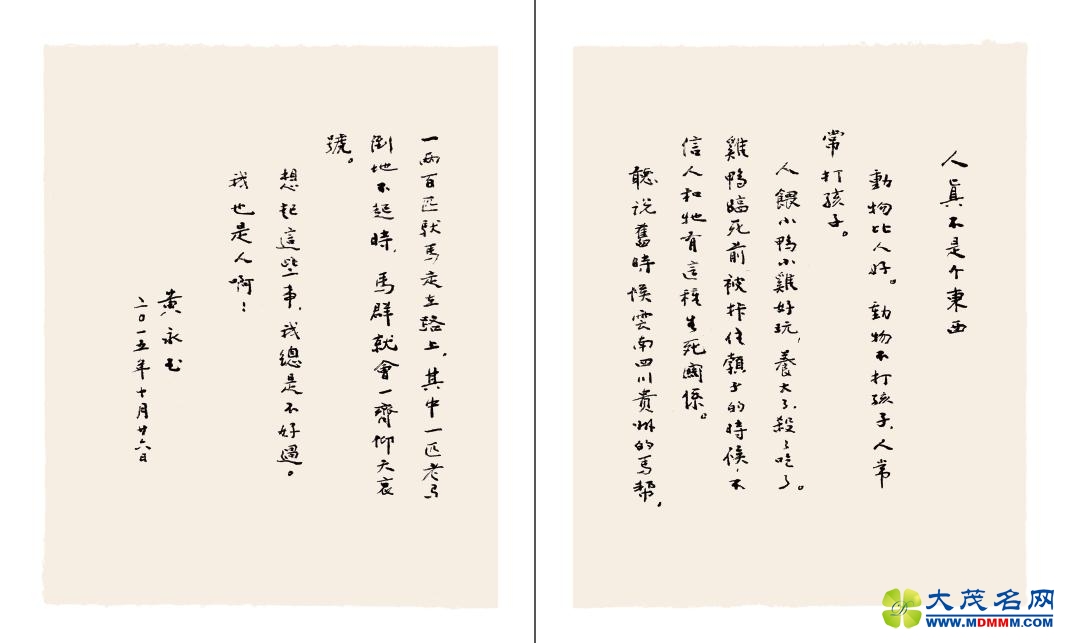 人真不是个東西
動物比人好。動物不打孩子,人常
常打孩子。
人餵小鴨小雞好玩,養大了,殺了吃了。
雞鴨臨死前被拤住頸子的時候,不
信人和牠有這種生死關係。
聽说舊時候雲南四川貴州的馬幫,
一兩百匹馱馬走在路上,其中一匹老馬
倒地不起時,馬群就會一齊仰天哀
號。
想起這些事,我總是不好過。
我也是人啊!
黃永玉
二〇一五年十月廿六日
大茂名网
WWW.MDMMM.COM